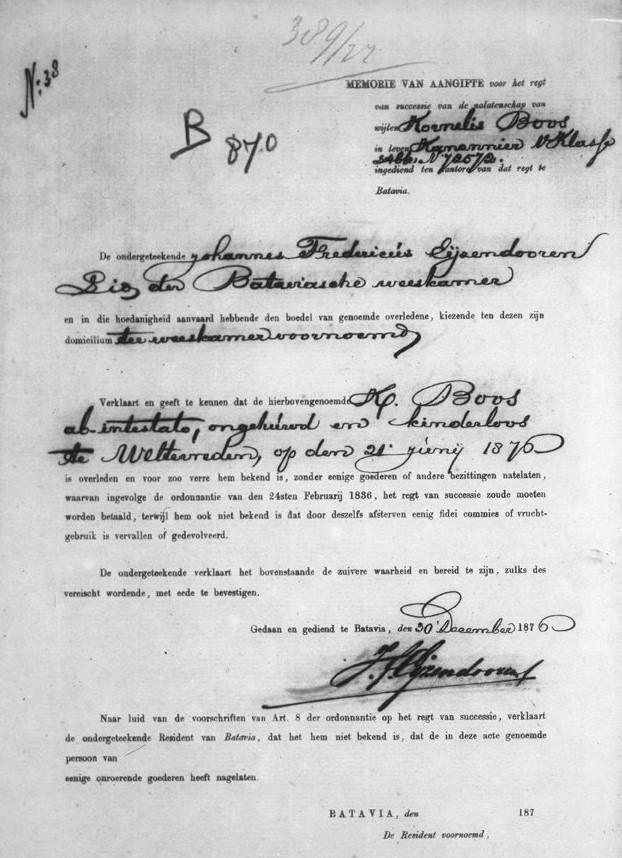 389/22
N: 38
B 870
MEMORIE VAN AANGIFTE voor het regt
van successie van de nalatenschap van
wijlen Kornelis Boos
in leven Kanonnier 1e Klasse
N 72572.
ingediend ten kantore van dat regt te
Batavia.
De ondergeteekende Johannes Fredericús Eijsendooren
der Bataviasche weeskamer
en in die hoedanigheid aanvaard hebbende den boedel van genoemde overledene, kiezende ten dezen zijn
domicilium ter weeskamer voornoemd
Verklaart en geeft te kennen dat de hierbovengenoemde K. Boos
ab-intestato, ongehúwd en kinderloos
te Weltevreden, op den 21 junij 1876
is overleden en voor zoo verre hem bekend is, zonder eenige goederen of andere bezittingen natelaten,
waarvan ingevolge de ordonnantie van den 24sten Februarij 1836, het regt van successie zoude moeten
worden betaald, terwijl hem ook niet bekend is dat door deszelfs afsterven eenig fidei commies of vrucht-
gebruik is vervallen of gedevolveerd.
De ondergeteekende verklaart het bovenstaande de zuivere waarheid en bereid te zijn, zulks des
vereischt wordende, met eede te bevestigen.
Gedaan en gediend te Batavia, den 30 December 1876
J F Eijsendooren
Naar luid van de voorschriften van Art. 8 der ordonnantie op het regt van successie, verklaart
de ondergeteekende Resident van Batavia, dat het hem niet bekend is, dat de in deze acte genoemde
persoon van
eenige onroerende goederen heeft nagelaten.
BATAVIA, den 187
De Resident voornoemd,